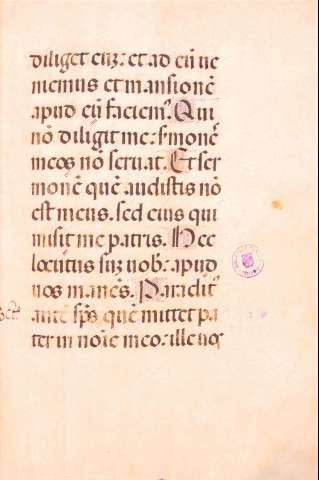 diliget eū: et ad eū ue
niemus et mansionē
apud eū faciem⁹. Qui
nō diligit me: s̄monē
meos nō seruat. Et ser
monē quē audistis nō
est meus. sed eius qui
misit me patris. Hec
locutus suz uob: apud
uos manēs. Paraclit⁹
autē sp̄s quē mittet pa
ter in noīe meo: ille uos